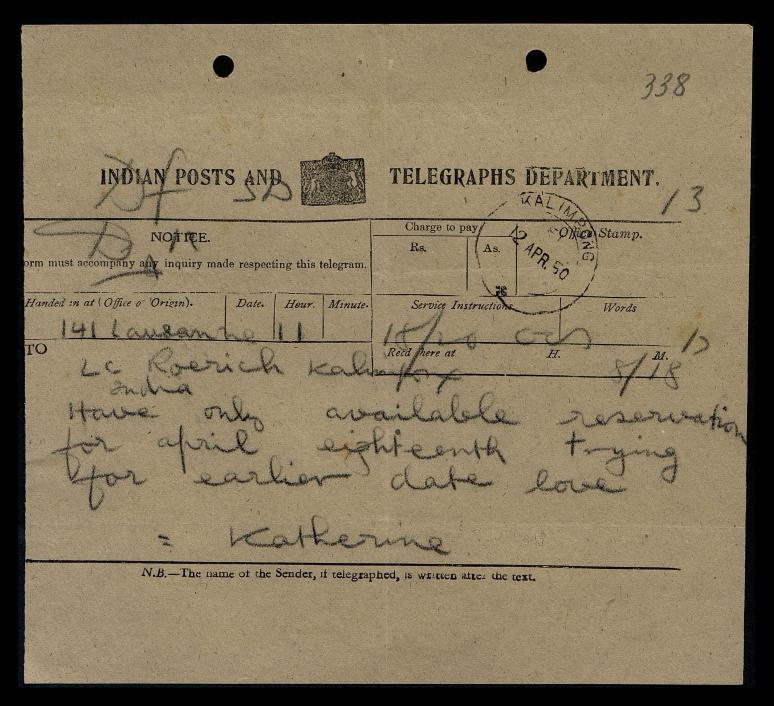 338
INDIAN POSTS AND TELEGRAPHS DEPARTMENT.
13
NOTICE.
orm must accompany any inquiry made respecting this telegram.
Charge to pay
Rs. As.
Office Stamp.
KALIMPONG
12 APR. 50
Handed in at (Office of Origin). Date. Hour. Minute. Service Instructions Words
141 Lausanne 11 18/20
TO
Recd here at H. M.
8/18
LC Roerich Kalimpong
India
Have only available reservation
for april eighteenth trying
for earlier date love
= Katherine
N.B.—The name of the Sender, if telegraphed, is written after the text.